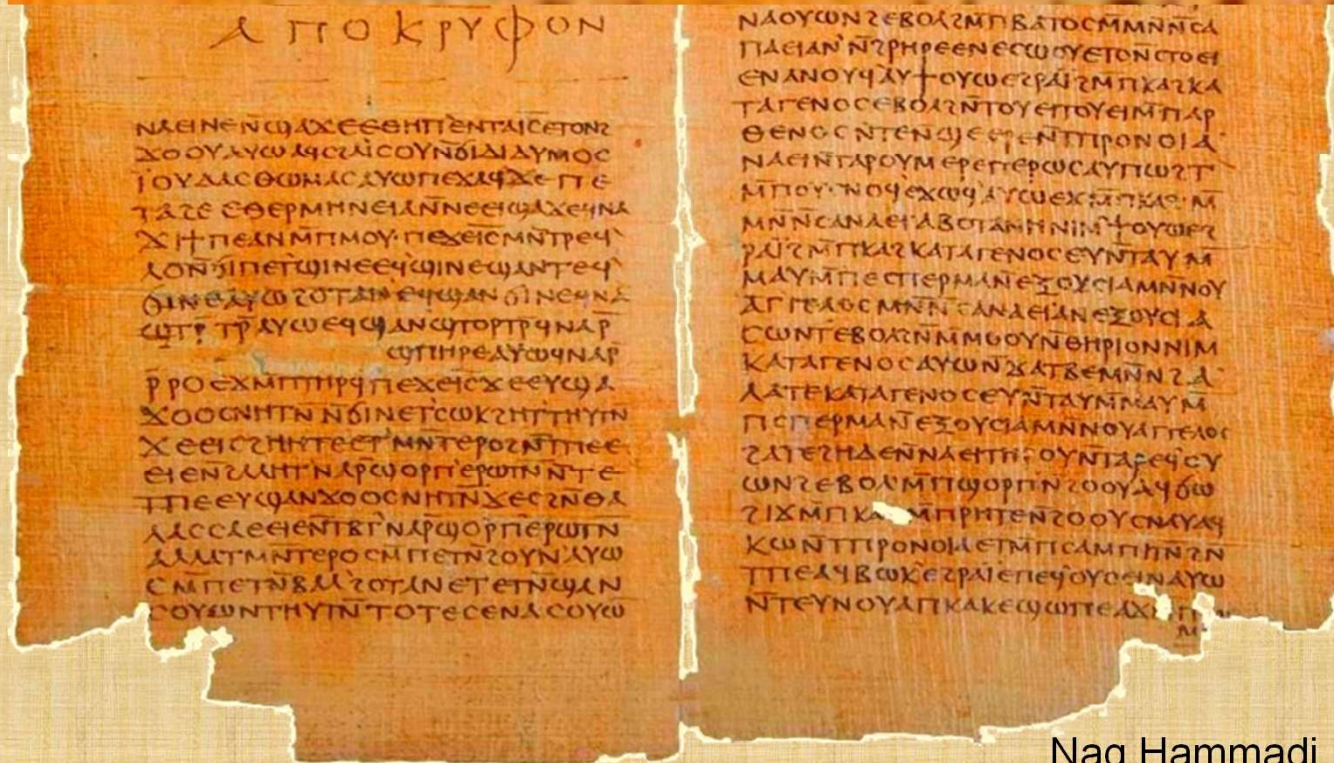 ⲁⲡⲟⲕⲣⲩⲫⲟⲛ
ⲛⲁⲉⲓⲛⲉⲛ̄ϣⲁϫⲉⲉⲑⲏⲡʼⲉⲛⲧⲁⲓ̅ⲥ̅ⲉⲧⲟⲛϩ
ϫⲟⲟⲩⲁⲩⲱⲁϥⲥϩⲁⲓ̈ⲥⲟⲩⲛ̄ϭⲓⲇⲓⲇⲩⲙⲟⲥ
ⲓ̈ⲟⲩⲇⲁⲥⲑⲱⲙⲁⲥⲁⲩⲱⲡⲉϫⲁϥϫⲉⲡⲉ
ⲧⲁϩⲉⲉⲑⲉⲣⲙⲏⲛⲉⲓⲁⲛ̄ⲛⲉⲉⲓϣⲁϫⲉϥⲛⲁ
ϫⲓϯⲡⲉⲁⲛⲙ̄ⲡⲙⲟⲩ·ⲡⲉϫⲉⲓ̅ⲥ̅ⲙⲛ̄ⲧⲣⲉϥʼ
ⲗⲟⲛ̄ϭⲓⲡⲉⲧϣⲓⲛⲉⲉϥϣⲓⲛⲉϣⲁⲛⲧⲉϥʼ
ϭⲓⲛⲉⲁⲩⲱϩⲟⲧⲁⲛʼⲉϥϣⲁⲛϭⲓⲛⲉϥⲛⲁ
ϣⲧⲣ̄ⲧⲣ̄ⲁⲩⲱⲉϥϣⲁⲛϣⲧⲟⲣⲧⲣ̄ϥⲛⲁⲣ̄
ϣⲡⲏⲣⲉⲁⲩⲱϥⲛⲁⲣ̄
ⲣ̄ⲣⲟⲉϫⲙ̄ⲡⲧⲏⲣϥʼⲡⲉϫⲉⲓ̅ⲥ̅ϫⲉⲉⲩϣⲁ
ϫⲟⲟⲥⲛⲏⲧⲛ̄ⲛ̄ϭⲓⲛⲉⲧʼⲥⲱⲕϩⲏⲧʼⲧⲏⲩⲧⲛ̄
ϫⲉⲉⲓⲥϩⲏⲏⲧⲉⲉⲧʼⲙⲛ̄ⲧⲉⲣⲟϩⲛ̄ⲧⲡⲉⲉ
ⲉⲓⲉⲛ̄ϩⲁⲗⲏⲧʼⲛⲁⲣ̄ϣⲟⲣⲡʼⲉⲣⲱⲧⲛ̄ⲛ̄ⲧⲉ
ⲧⲡⲉⲉⲩϣⲁⲛϫⲟⲟⲥⲛⲏⲧⲛ̄ϫⲉⲥϩⲛ̄ⲑⲁ
ⲗⲁⲥⲥⲁⲉⲉⲓⲉⲛ̄ⲧⲃⲧʼⲛⲁⲣ̄ϣⲟⲣⲡʼⲉⲣⲱⲧⲛ̄
ⲁⲗⲗⲁⲧⲙⲛ̄ⲧⲉⲣⲟⲥⲙ̄ⲡⲉⲧⲛ̄ϩⲟⲩⲛʼⲁⲩⲱ
ⲥⲙ̄ⲡⲉⲧⲛ̄ⲃⲁⲗʼϩⲟⲧⲁⲛⲉⲧⲉⲧⲛ̄ϣⲁⲛ
ⲥⲟⲩⲱⲛⲧⲏⲩⲧⲛ̄ⲧⲟⲧⲉⲥⲉⲛⲁⲥⲟⲩⲱ
ⲛⲁⲟⲩⲱⲛϩⲉⲃⲟⲗϩⲙ̄ⲡⲃⲁⲧⲟⲥⲙⲛ̄ⲛ̄ⲥⲁ
ⲛⲁⲉⲓⲁⲛʼⲛ̄ϩⲣⲏⲣⲉⲉⲛⲉⲥⲱⲟⲩⲉⲧⲟⲛⲥⲧⲟⲉⲓ
ⲉⲛⲁⲛⲟⲩϥʼⲁⲩϯⲟⲩⲱⲉϩⲣⲁⲓ̈ϩⲙ̄ⲡⲕⲁϩⲕⲁ
ⲧⲁⲅⲉⲛⲟⲥⲉⲃⲟⲗϩⲛ̄ⲧⲟⲩⲉⲓⲧⲟⲩⲉⲓⲙ̄ⲡⲁⲣ
ⲑⲉⲛⲟⲥⲛ̄ⲧⲉⲛ̄ϣⲉⲉⲣⲉⲛ̄ⲧⲡⲣⲟⲛⲟⲓⲁ
ⲛⲁⲉⲓⲛ̄ⲧⲁⲣⲟⲩⲙⲉⲣⲉⲡⲉⲣⲱⲥⲁⲩⲡⲱϩⲧ
ⲙ̄ⲡⲟⲩⲥⲛⲟϥʼⲉϫⲱϥʼⲁⲩⲱⲉϫⲙ̄ⲡⲕⲁϩ·ⲙ
ⲙⲛ̄ⲛ̄ⲥⲁⲛⲁⲉⲓⲁⲃⲟⲧⲁⲛⲏⲛⲓⲙϯⲟⲩⲱⲉϩ
ⲣⲁⲓ̈ϩⲙ̄ⲡⲕⲁϩⲕⲁⲧⲁⲅⲉⲛⲟⲥⲉⲩⲛ̄ⲧⲁⲩⲙ
ⲙⲁⲩⲙ̄ⲡⲉⲥⲡⲉⲣⲙⲁⲛ̄ⲉⲝⲟⲩⲥⲓⲁⲙⲛ̄ⲛⲟⲩ
ⲁⲅⲅⲉⲗⲟⲥⲙⲛ̄ⲛ̄ⲥⲁⲛⲁⲉⲓⲁⲛⲉⲝⲟⲩⲥⲓⲁ
ⲥⲱⲛⲧⲉⲃⲟⲗϩⲛ̄ⲙ̄ⲙⲟⲩⲛ̄ⲑⲏⲣⲓⲟⲛⲛⲓⲙ
ⲕⲁⲧⲁⲅⲉⲛⲟⲥⲁⲩⲱⲛ̄ϫⲁⲧⲃⲉⲙⲛ̄ⲛ̄ϩⲁ
ⲗⲁⲧⲉⲕⲁⲧⲁⲅⲉⲛⲟⲥⲉⲩⲛ̄ⲧⲁⲩⲙ̄ⲙⲁⲩⲙ̄
ⲡⲥⲡⲉⲣⲙⲁⲛ̄ⲉⲝⲟⲩⲥⲓⲁⲙⲛ̄ⲛⲟⲩⲁⲅⲅⲉⲗⲟⲥ
ϩⲁⲧⲉϩⲏⲇⲉⲛ̄ⲛⲁⲉⲓⲧⲏⲣⲟⲩⲛ̄ⲧⲁⲣⲉϥʼⲟⲩ
ⲱⲛϩⲉⲃⲟⲗⲙ̄ⲡϣⲟⲣⲡʼⲛ̄ϩⲟⲟⲩⲁϥϭⲱ
ϩⲓϫⲙ̄ⲡⲕⲁ ⲙ̄ⲡⲣⲏⲧⲉⲛ̄ϩⲟⲟⲩⲥⲛⲁⲩⲁϥ
ⲕⲱⲛ̄ⲧⲡⲣⲟⲛⲟⲓⲁⲉⲧⲙ̄ⲡⲥⲁⲙⲡⲓⲧⲛ̄ϩⲛ̄
ⲧⲡⲉⲁϥⲃⲱⲕʼⲉϩⲣⲁⲓ̈ⲉⲡⲉϥʼⲟⲩⲟⲉⲓⲛⲁⲩⲱ
ⲛ̄ⲧⲉⲩⲛⲟⲩⲁⲡⲕⲁⲕⲉϣⲱⲡⲉⲁϫ
Nag Hammadi